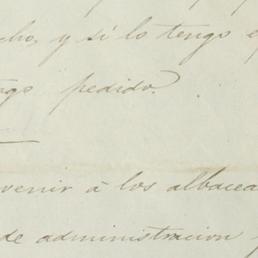 cho, y si lo tengo
pedido.
venir á los albacea
de administracion